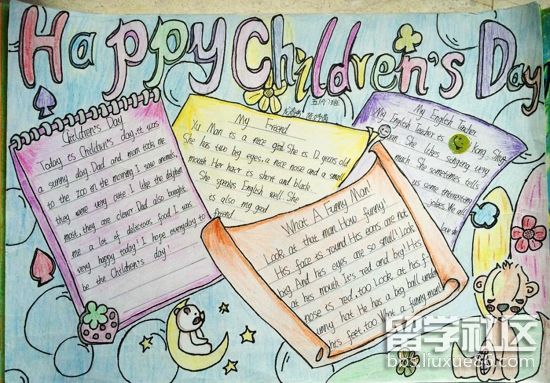 Happy Children's Day
Children's Day
Today is Children's day, it was
a sunny day. Dad and mom took me
to the zoo in the morning. I saw animals,
they were very cute. I like the elephant
most, they are clever. Dad also bought
me a lot of delicious food. I was
very happy today! I hope everyday to
be the Children's day!
My Friend
Yu Man is a nice girl. She is 12 years old
She has two big eyes, a nice nose and a small
mouth. Her hair is short and black.
She speaks English well. She
is also my good
friend
My English Teacher
My English Teacher is Song. She
can She likes singing very
much. She sometimes tells
us some interesting
jokes. We all
What A Funny Man!
Look at that man. How funny!
His face is round. His ears are not
big. And his eyes are so small! Look
at his mouth. It's red and big! His
nose is red, too. Look at his f-
unny hat. He has a big ball under
his feet, too. What a funny man!
留学社区
bbs.liuxue86.com